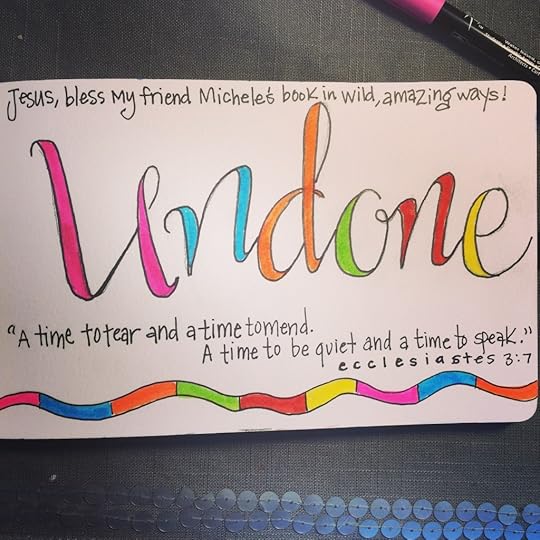 Jesus, bless My friend Michele's book in wild, amazing ways!
Undone
"A time to tear and a time to mend.
A time to be quiet and a time to speak."
ecclesiastes 3:7